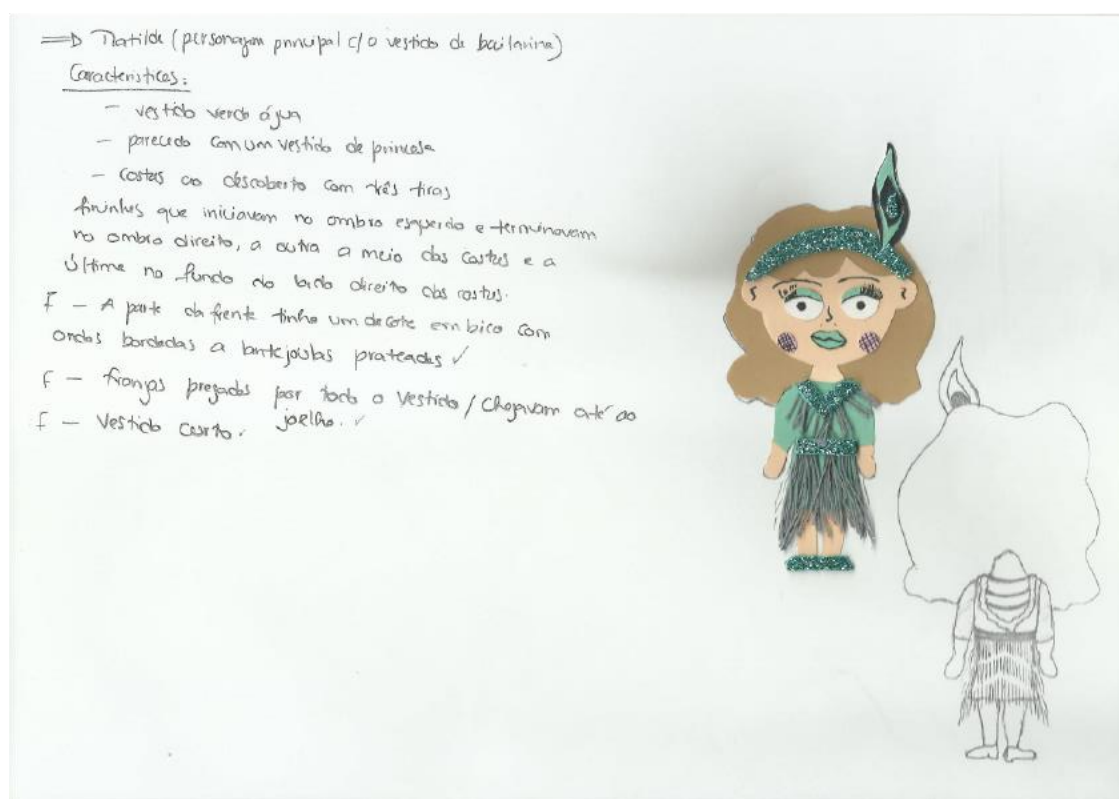 ⇒ Matilde (personagem principal c/o vestido de bailarina)
Características:
- vestido verde água
- parecido com um vestido de princesa
- costas ao descoberto com três tiras
fininhas que iniciavam no ombro esquerdo e terminavam
no ombro direito, a outra a meio das costas e a
última no fundo do lado direito das costas.
F - A parte da frente tinha um decote em bico com
ondas bordadas a lantejoulas prateadas ✓
F - franjas pregadas por todo o vestido / chegavam até ao
joelho. ✓
F - Vestido curto.